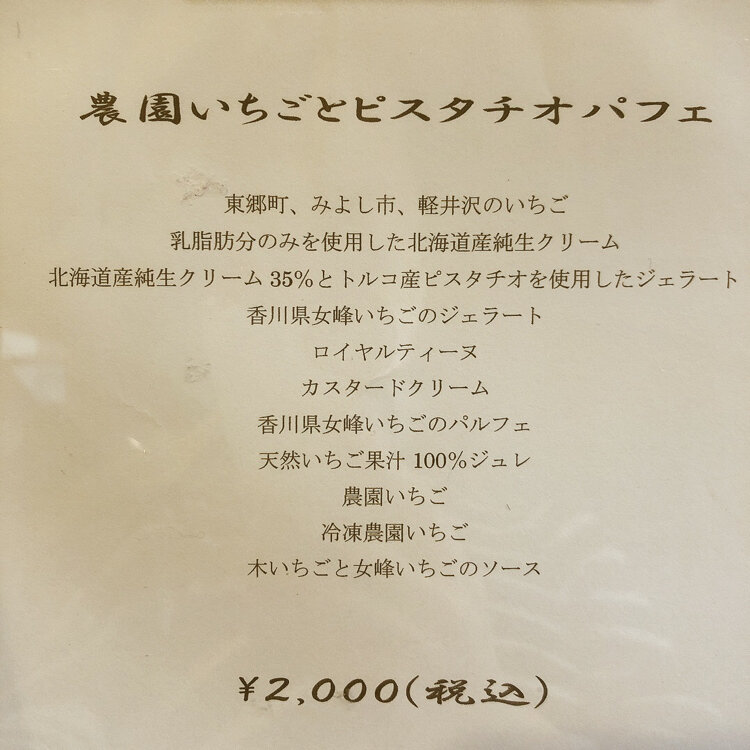 農園いちごとピスタチオパフェ
東郷町、みよし市、軽井沢のいちご
乳脂肪分のみを使用した北海道産純生クリーム
北海道産純生クリーム 35%とトルコ産ピスタチオを使用したジェラート
香川県女峰いちごのジェラート
ロイヤルティーヌ
カスタードクリーム
香川県女峰いちごのパルフェ
天然いちご果汁 100%ジュレ
農園いちご
冷凍農園いちご
木いちごと女峰いちごのソース
¥2,000(税込)